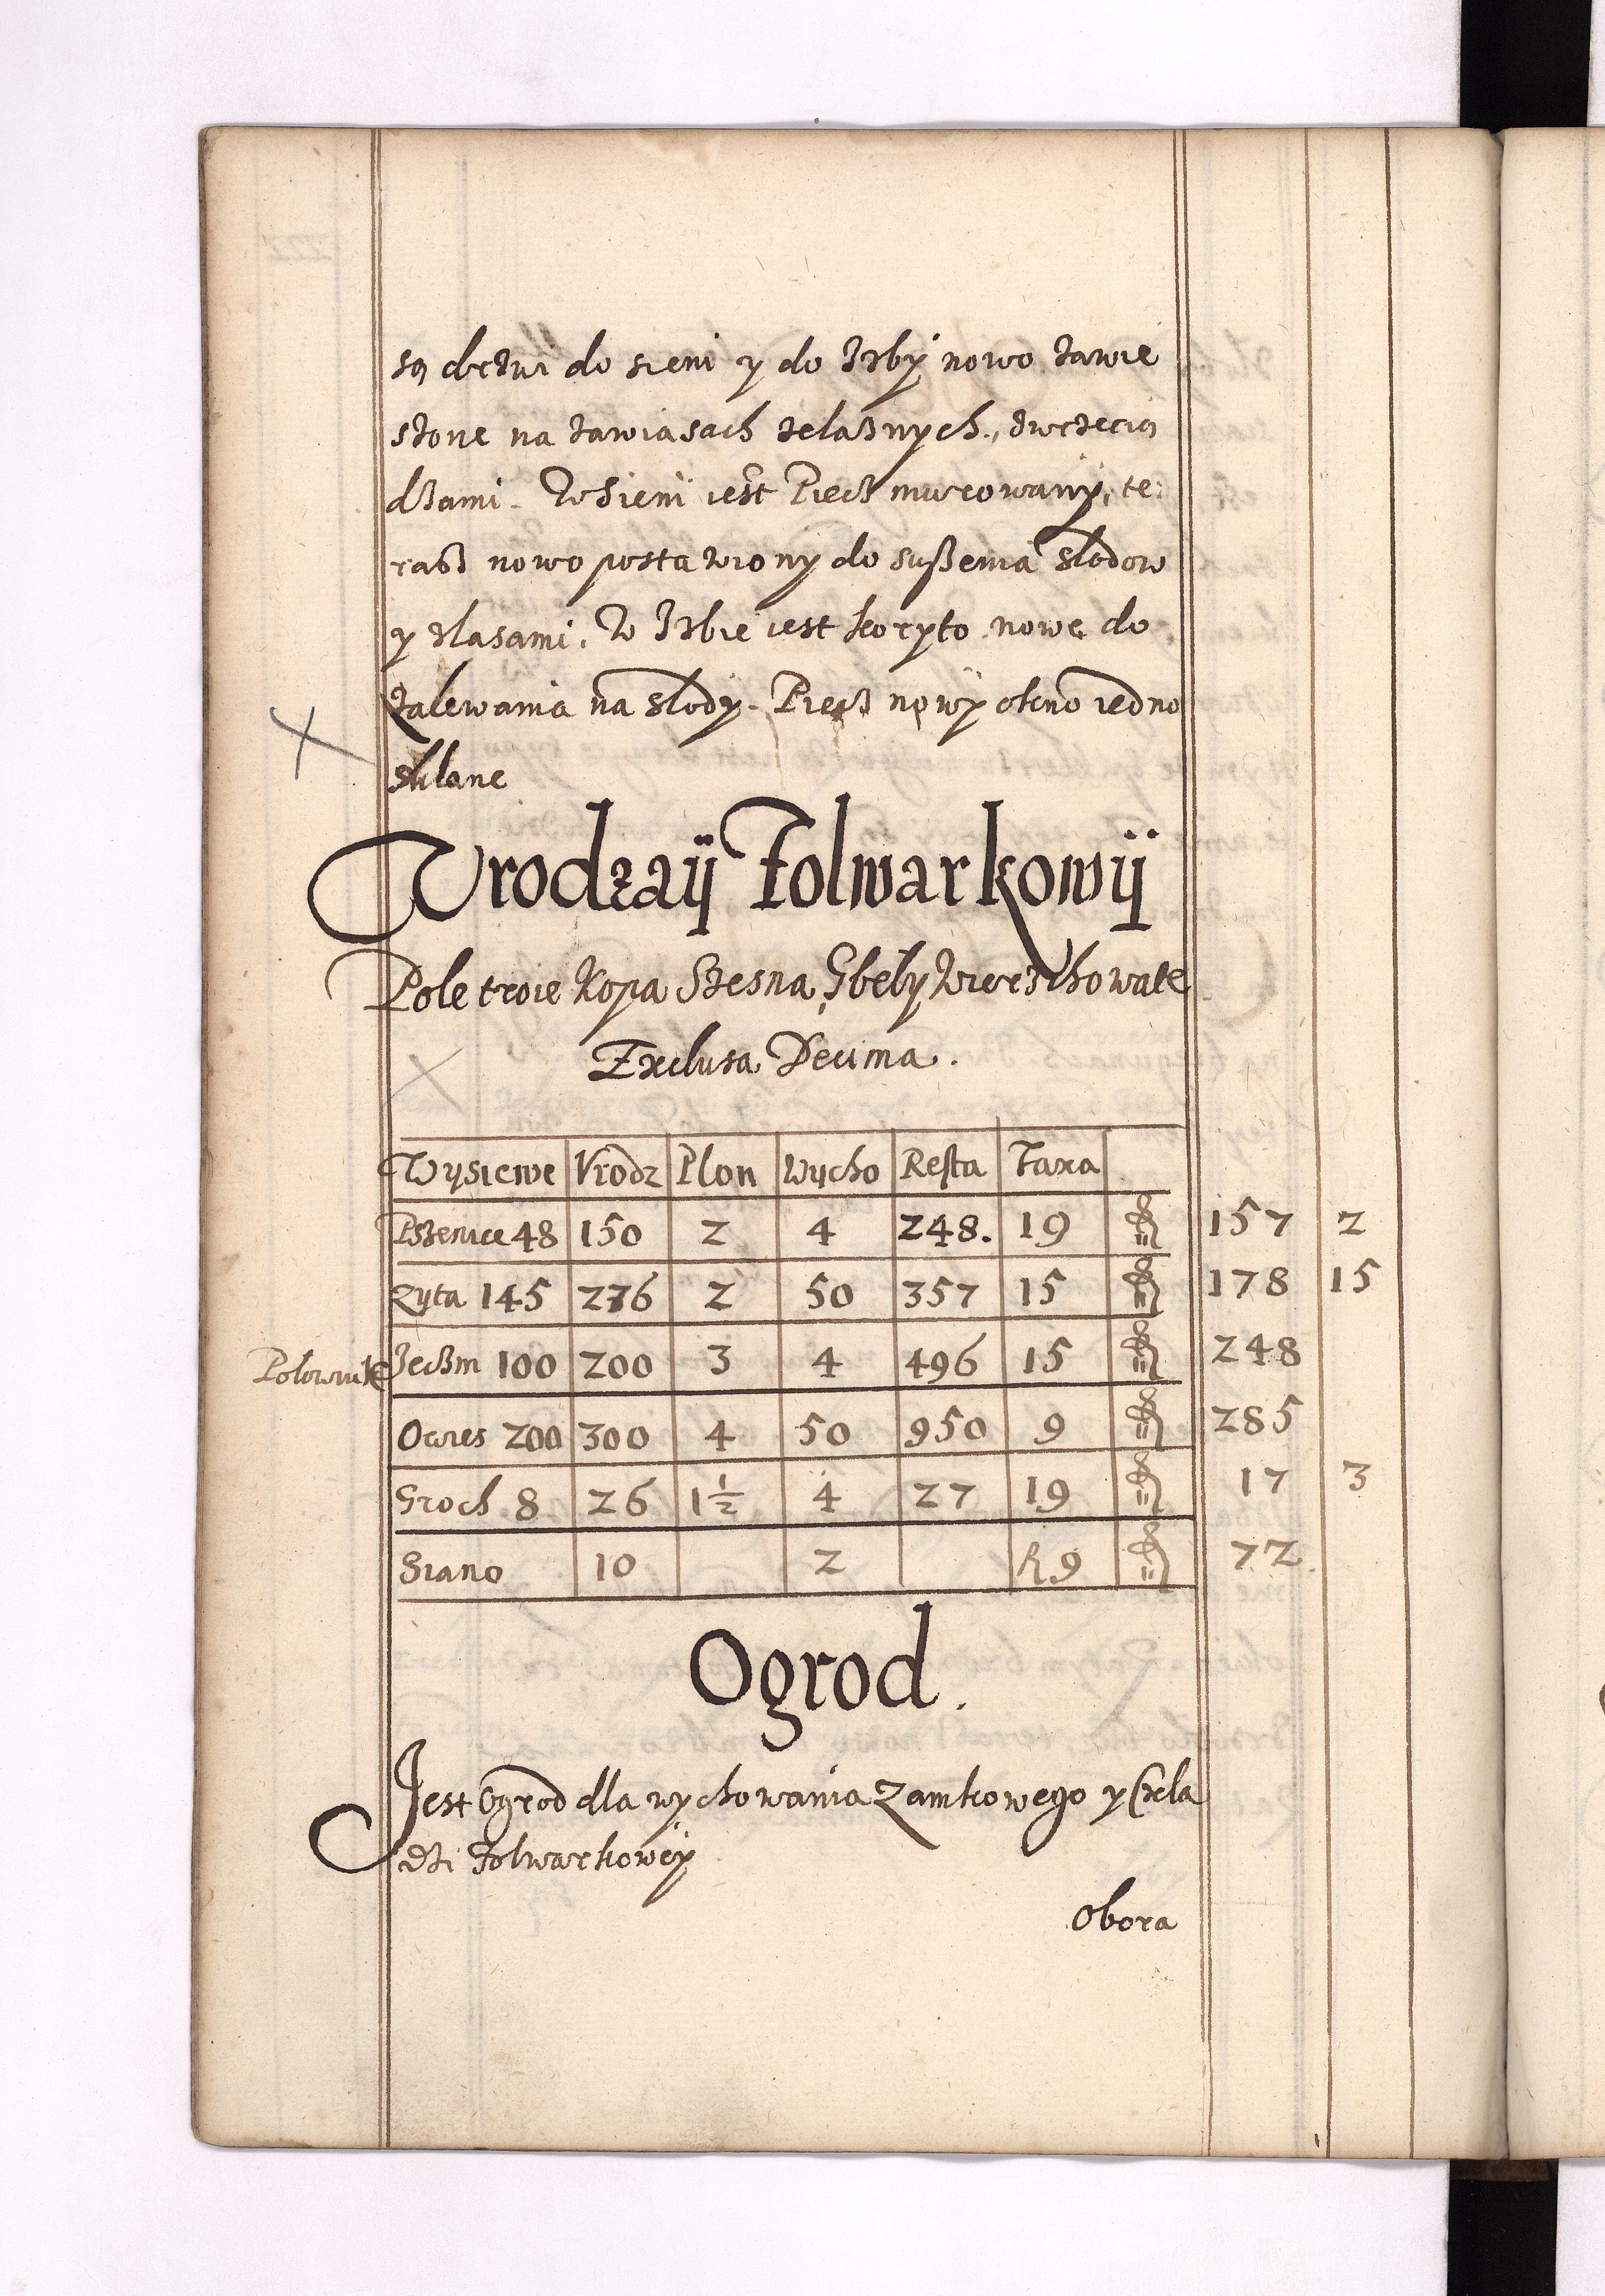 są drzwi do sieni y do Izby nowo zawie
szone na zawiasach żelasznych, zwrzecią
dzami. W Sieni iest Piecz murowany, te:
rasz nowo postawiony do suszenia słodow
y zlasami. W Izbie iest koryto nowe do
zalewania na słody. Piecz nowy okno iedno
sklane
Vrodzaij Folwarkowij
Pole troie Kopa Szesna, Gbely Wierzchowate
Exclusa Decima.
Wysiewe Vrodz Plon Wycho Resta Taxa
Pszenice 48 150 2 4 248. 19 157 2
Zyta 145 276 2 50 357 15 178 15
Polownik Jeczm 100 200 3 4 496 15 248
Owies 200 300 4 50 950 9 285
Groch 8 26 1½ 4 27 19 17 3
Siano 10 2 R 9 72
Ogrod.
Jest Ogrod dla wychowania Zamkowego y Czela
dzi Folwarkowey
Obora